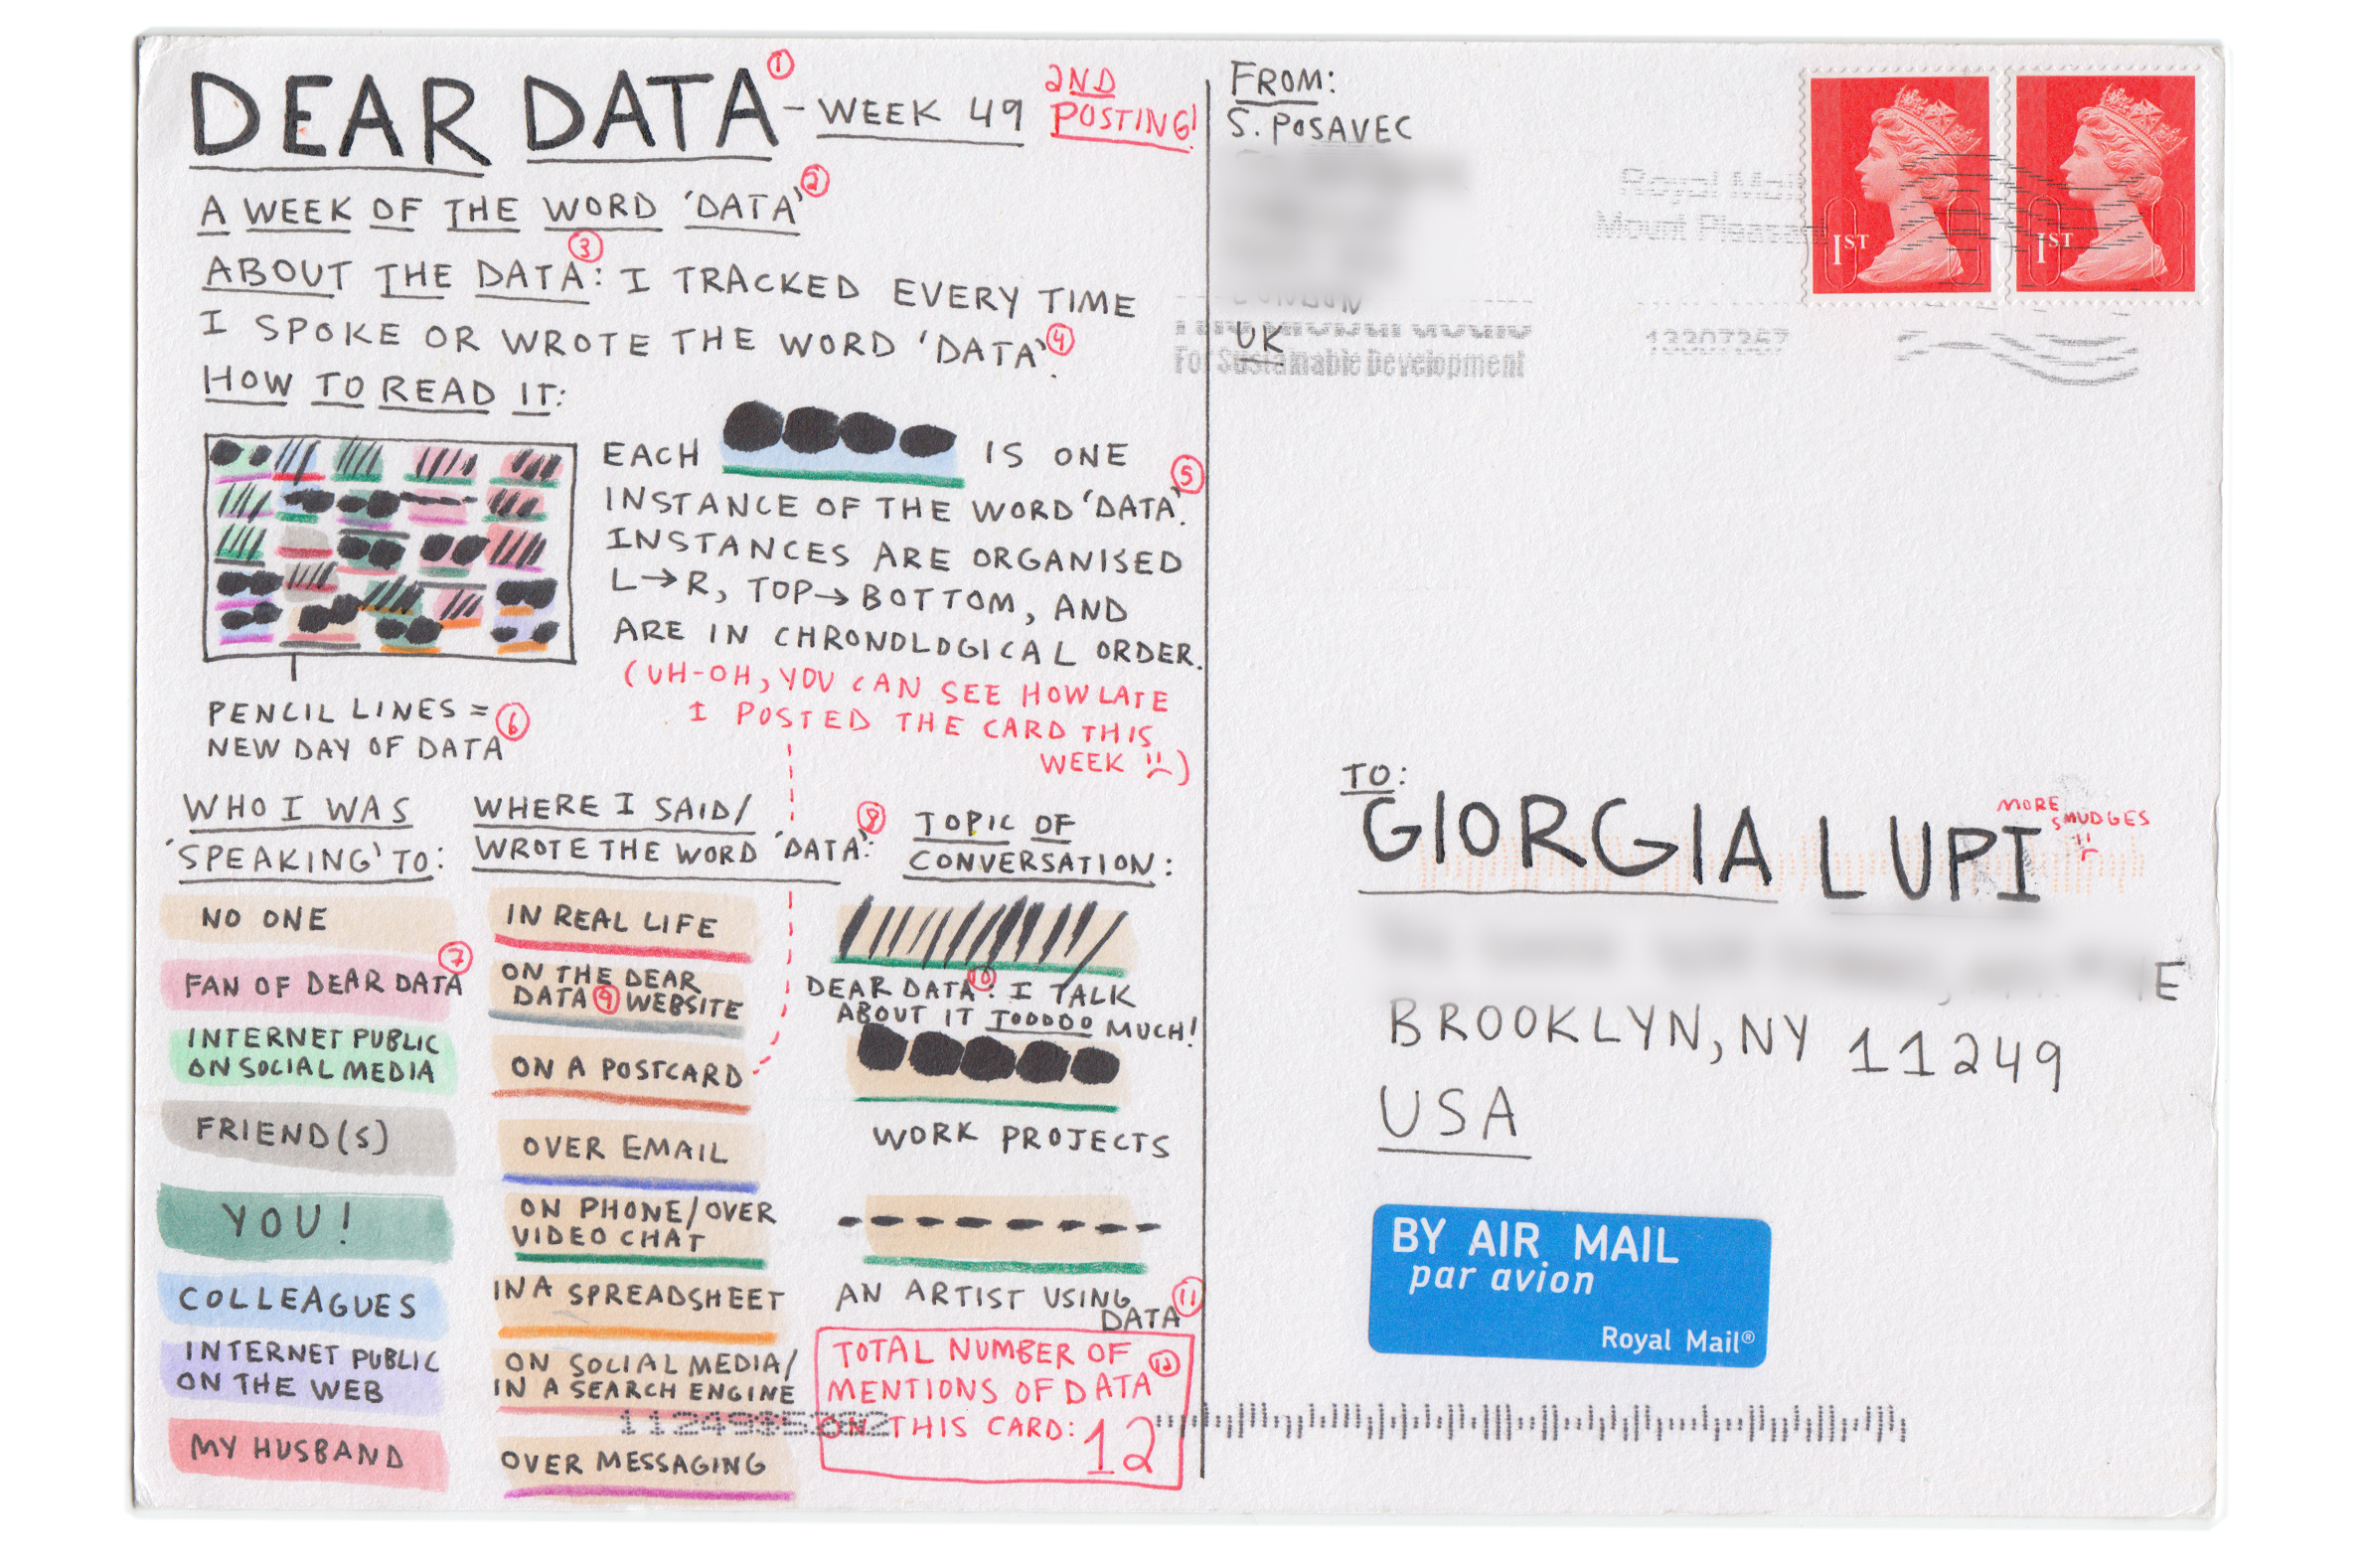 DEAR DATA ① - WEEK 49
2ND
POSTING!
A WEEK OF THE WORD 'DATA' ②
ABOUT THE DATA ③: I TRACKED EVERY TIME
I SPOKE OR WROTE THE WORD 'DATA' ④.
HOW TO READ IT:
EACH IS ONE
INSTANCE OF THE WORD 'DATA' ⑤.
INSTANCES ARE ORGANISED
L→R, TOP→BOTTOM, AND
ARE IN CHRONOLOGICAL ORDER.
(UH-OH, YOU CAN SEE HOW LATE
I POSTED THE CARD THIS
WEEK)
PENCIL LINES =
NEW DAY OF DATA ⑥
WHO I WAS
'SPEAKING' TO:
NO ONE
FAN OF DEAR DATA ⑦
INTERNET PUBLIC
ON SOCIAL MEDIA
FRIEND(S)
YOU!
COLLEAGUES
INTERNET PUBLIC
ON THE WEB
MY HUSBAND
WHERE I SAID/
WROTE THE WORD 'DATA' ⑧:
IN REAL LIFE
ON THE DEAR
DATA ⑨ WEBSITE
ON A POSTCARD
OVER EMAIL
ON PHONE/OVER
VIDEO CHAT
IN A SPREADSHEET
ON SOCIAL MEDIA/
IN A SEARCH ENGINE
OVER MESSAGING
TOPIC OF
CONVERSATION:
DEAR DATA ⑩: I TALK
ABOUT IT TOOOOO MUCH!
WORK PROJECTS
AN ARTIST USING
DATA ⑪
TOTAL NUMBER OF
MENTIONS OF DATA ⑫
ON THIS CARD: 12
FROM:
S. POSAVEC
LONDON
UK
Royal Mail
Mount Pleasant
For Sustainable Development
13207267
1ST
1ST
TO:
GIORGIA LUPI
MORE
SMUDGES
E
BROOKLYN, NY 11249
USA
BY AIR MAIL
par avion
Royal Mail®